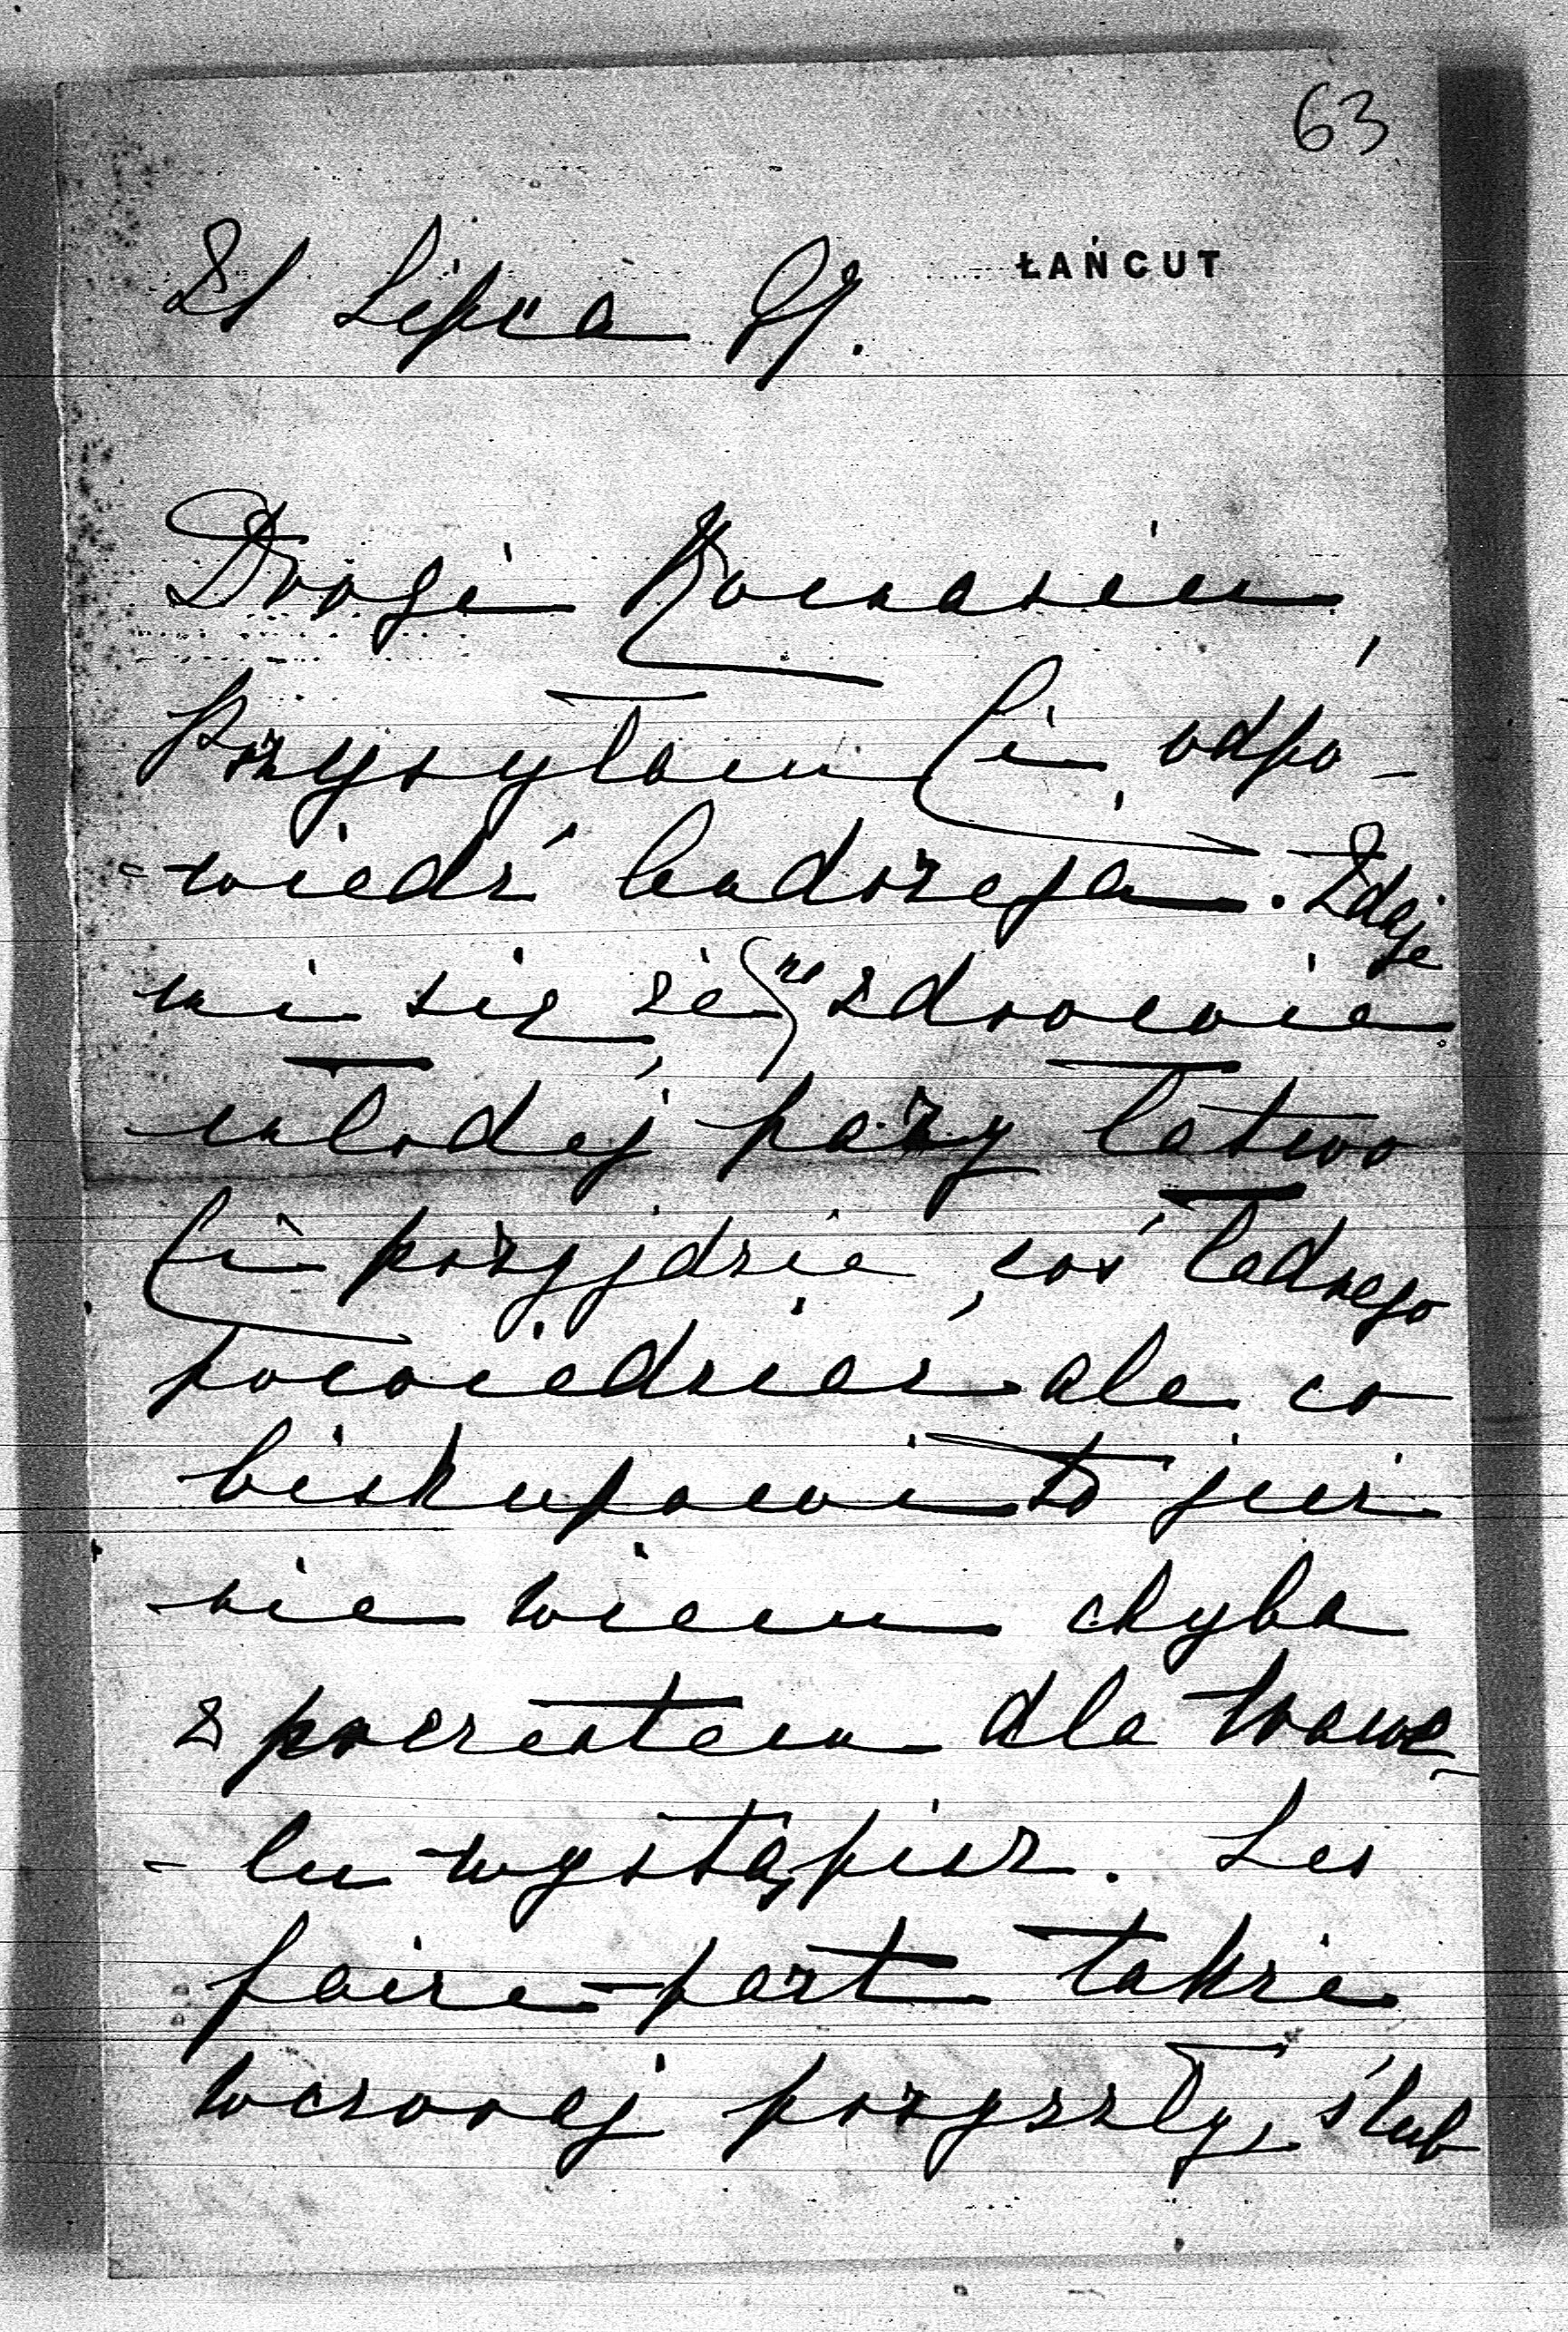 63
ŁAŃCUT
21 Lipca 97.
Drogi Kocrasiu,
Przysyłam Ci odpo-
-wiedź Andrzeja. Zdaje
mi się, że na zdrowie
młodej pary łatwo
Ci przyjdzie, coś ładnego
powiedzieć ale co
biskupowi to już
nie wiem chyba
z poczestem dla Wawe-
-lu wystąpisz. Les
faire-part także
wczoraj przyszły, ślub